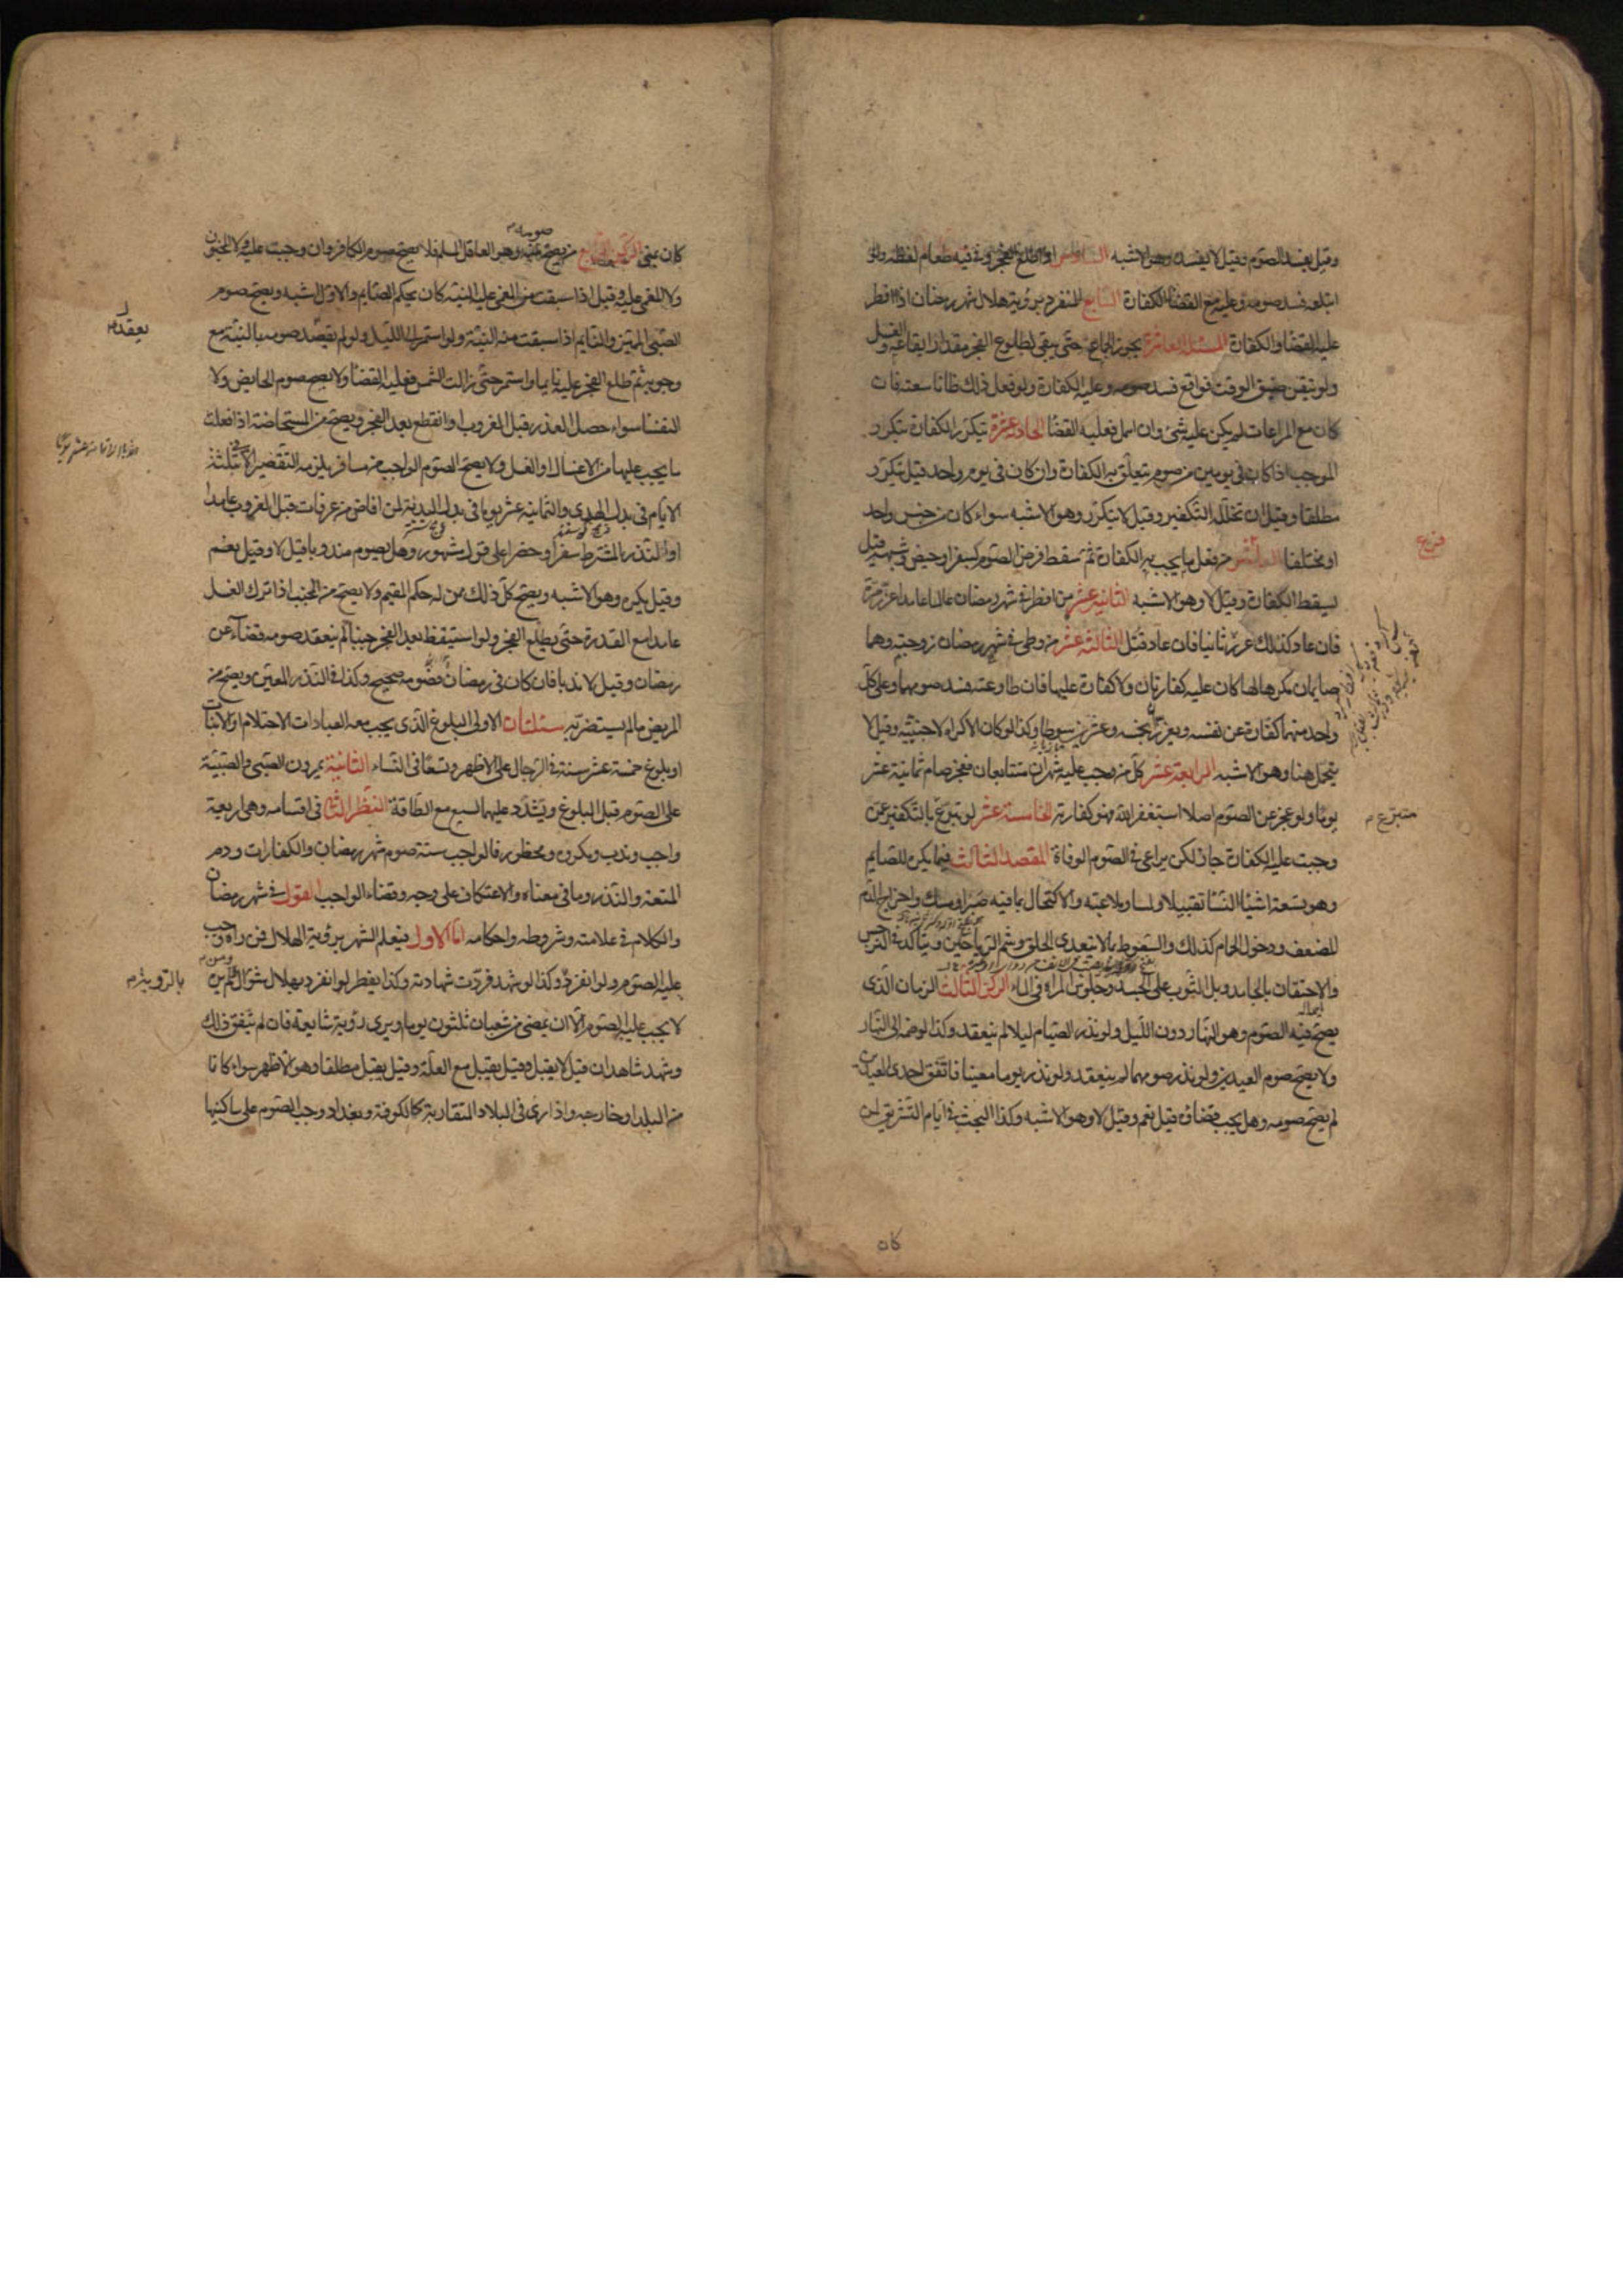 وقيل يفسد الصوم وقيل لا يفسد وهو الاشبه السادس اذا طلع الفجر وفي فيه طعام لفظه ولو
ابتلعه فسد صومه وعليه مع القضاء الكفارة السابع المنفرد برؤية هلال شهر رمضان اذا افطر
عليه القضاء والكفارة المسئلة العاشرة يجوز الجماع حتى يبقى لطلوع الفجر مقدار ايقاعه والغسل
ولو تيقن ضيق الوقت فواقع فسد صومه وعليه الكفارة ولو فعل ذلك ظانا سعته فان
كان مع المراعات لم يكن عليه شئ وان اهمل فعليه القضاء الحادية عشرة تتكرر الكفارة بتكرر
الموجب اذا كان في يومين من صوم تتعلق به الكفارة وان كان في يوم واحد قيل تتكرر
مطلقا وقيل ان تخلله التكفير وقيل لا تتكرر وهو الاشبه سواء كان من جنس واحد
او مختلفا من فعل ما يجب به الكفارة ثم سقط فرض الصوم لسفر او حيض وشبهه قيل
يسقط الكفارة وقيل لا وهو الاشبه الثانية عشر من افطر في شهر رمضان عالما عامدا عزر مرة
فان عاد كذلك عزر ثانيا فان عاد قتل الثالثة عشر من وطى في شهر رمضان زوجته وهما
صايمان مكرها لها كان عليه كفارتان ولا كفارة عليها فان طاوعته فسد صومهما وعلى كل
واحد منهما كفارة عن نفسه ويعزر بخمسة وعشرين سوطا وكذا لو كان الاكراه لاجنبية وقيل لا
يتحمل هنا وهو الاشبه الرابعة عشر كل من وجب عليه شهران متتابعان فعجز صام ثمانية عشر
يوما ولو عجز عن الصوم اصلا استغفر الله فهو كفارته الخامسة عشر لو تبرع بالتكفير عمن
وجبت عليه الكفارة جاز لكن يراعى في الصوم الوفاة المقصد الثالث فيما يكره للصايم
وهو تسعة اشياء النساء تقبيلا ولمسا وملاعبة والاكتحال بما فيه صبر او مسك واخراج الدم
المضعف ودخول الحمام كذلك والسعوط بما لا يتعدى الحلق وشم الرياحين ويتاكد في النرجس
والاحتقان بالجامد وبل الثوب على الجسد وجلوس المراة في الماء الركن الثالث الزمان الذى
يصح فيه الصوم وهو النهار دون الليل ولو نذر الصيام ليلا لم ينعقد وكذا لو ضمه الى النهار
ولا يصح صوم العيدين ولو نذر صومهما لم ينعقد ولو نذر يوما معينا فاتفق احدى العيدين
لم يصح صومه وهل يجب قضاؤه قيل نعم وقيل لا وهو الاشبه وكذا البحث في ايام التشريق لمن
فرع
متبرع
كان
كان بمنى الركن الرابع من يصح منه صومه وهو العاقل المسلم فلا يصح صوم الكافر وان وجبت عليه ولا المجنون
ولا المغمى عليه وقيل اذا سبقت من المغمى عليه النية كان بحكم الصايم والاول اشبه ويصح صوم
الصبى المميز والنايم اذا سبقت منه النية ولو استمر الى الليل ولو لم يقصد صومه بالنية مع
وجوبه ثم طلع الفجر عليه نايما واستمر حتى زالت الشمس فعليه القضاء ولا يصح صوم الحايض ولا
النفساء سواء حصل العذر قبل الغروب او انقطع بعد الفجر ويصح من المستحاضة اذا فعلت
ما يجب عليها من الاغسال او الغسل ولا يصح الصوم الواجب من مسافر يلزمه التقصير الا ثلثة
الايام في بدل الهدى والثمانية عشر يوما في بدل البدنة لمن افاض من عرفات قبل الغروب عامدا
او النذر المشترط سفرا وحضرا على قول مشهور وهل يصوم مندوبا قيل لا وقيل نعم
وقيل يكره وهو الاشبه ويصح كل ذلك ممن له حكم المقيم ولا يصح من الجنب اذا ترك الغسل
عامدا مع القدرة حتى يطلع الفجر ولو استيقظ بعد الفجر جنبا لم ينعقد صومه قضاء عن
رمضان وقيل لا ندبا فان كان في رمضان فصومه صحيح وكذا في النذر المعين ويصح من
المريض ما لم يستضر به مسئلتان الاولى البلوغ الذى يجب معه العبادات الاحتلام او الانبات
او بلوغ خمسة عشر سنة في الرجال على الاظهر وتسعا في النساء الثانية يمرون الصبى والصبية
على الصوم قبل البلوغ ويشدد عليهما لسبع مع الطاقة النظر الثانى في اقسامه وهى اربعة
واجب وندب ومكروه ومحظور فالواجب ستة صوم شهر رمضان والكفارات ودم
المتعة والنذر وما في معناه والاعتكاف على وجه وقضاء الواجب القول في شهر رمضان
والكلام في علامته وشروطه واحكامه اما الاول فيعلم الشهر برؤية الهلال فمن راه وجب
عليه الصوم ولو انفرد وكذا لو شهد فردت شهادته وكذا يفطر لو انفرد بهلال شوال ومن لم يره
لا يجب عليه الصوم الا ان يمضى من شعبان ثلثون يوما ويرى رؤية شايعة فان لم يتفق ذلك
وشهد شاهدان قيل لا يقبل وقيل يقبل مع العلة وقيل يقبل مطلقا وهو الاظهر سواء كانا
من البلد او خارجه واذا رئى في البلاد المتقاربة كالكوفة وبغداد وجب الصوم على ساكنيها
يعقد
بالرؤية